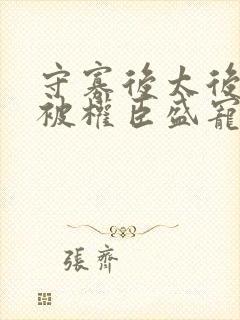 守寡後太後
被權臣盛寵
張齊